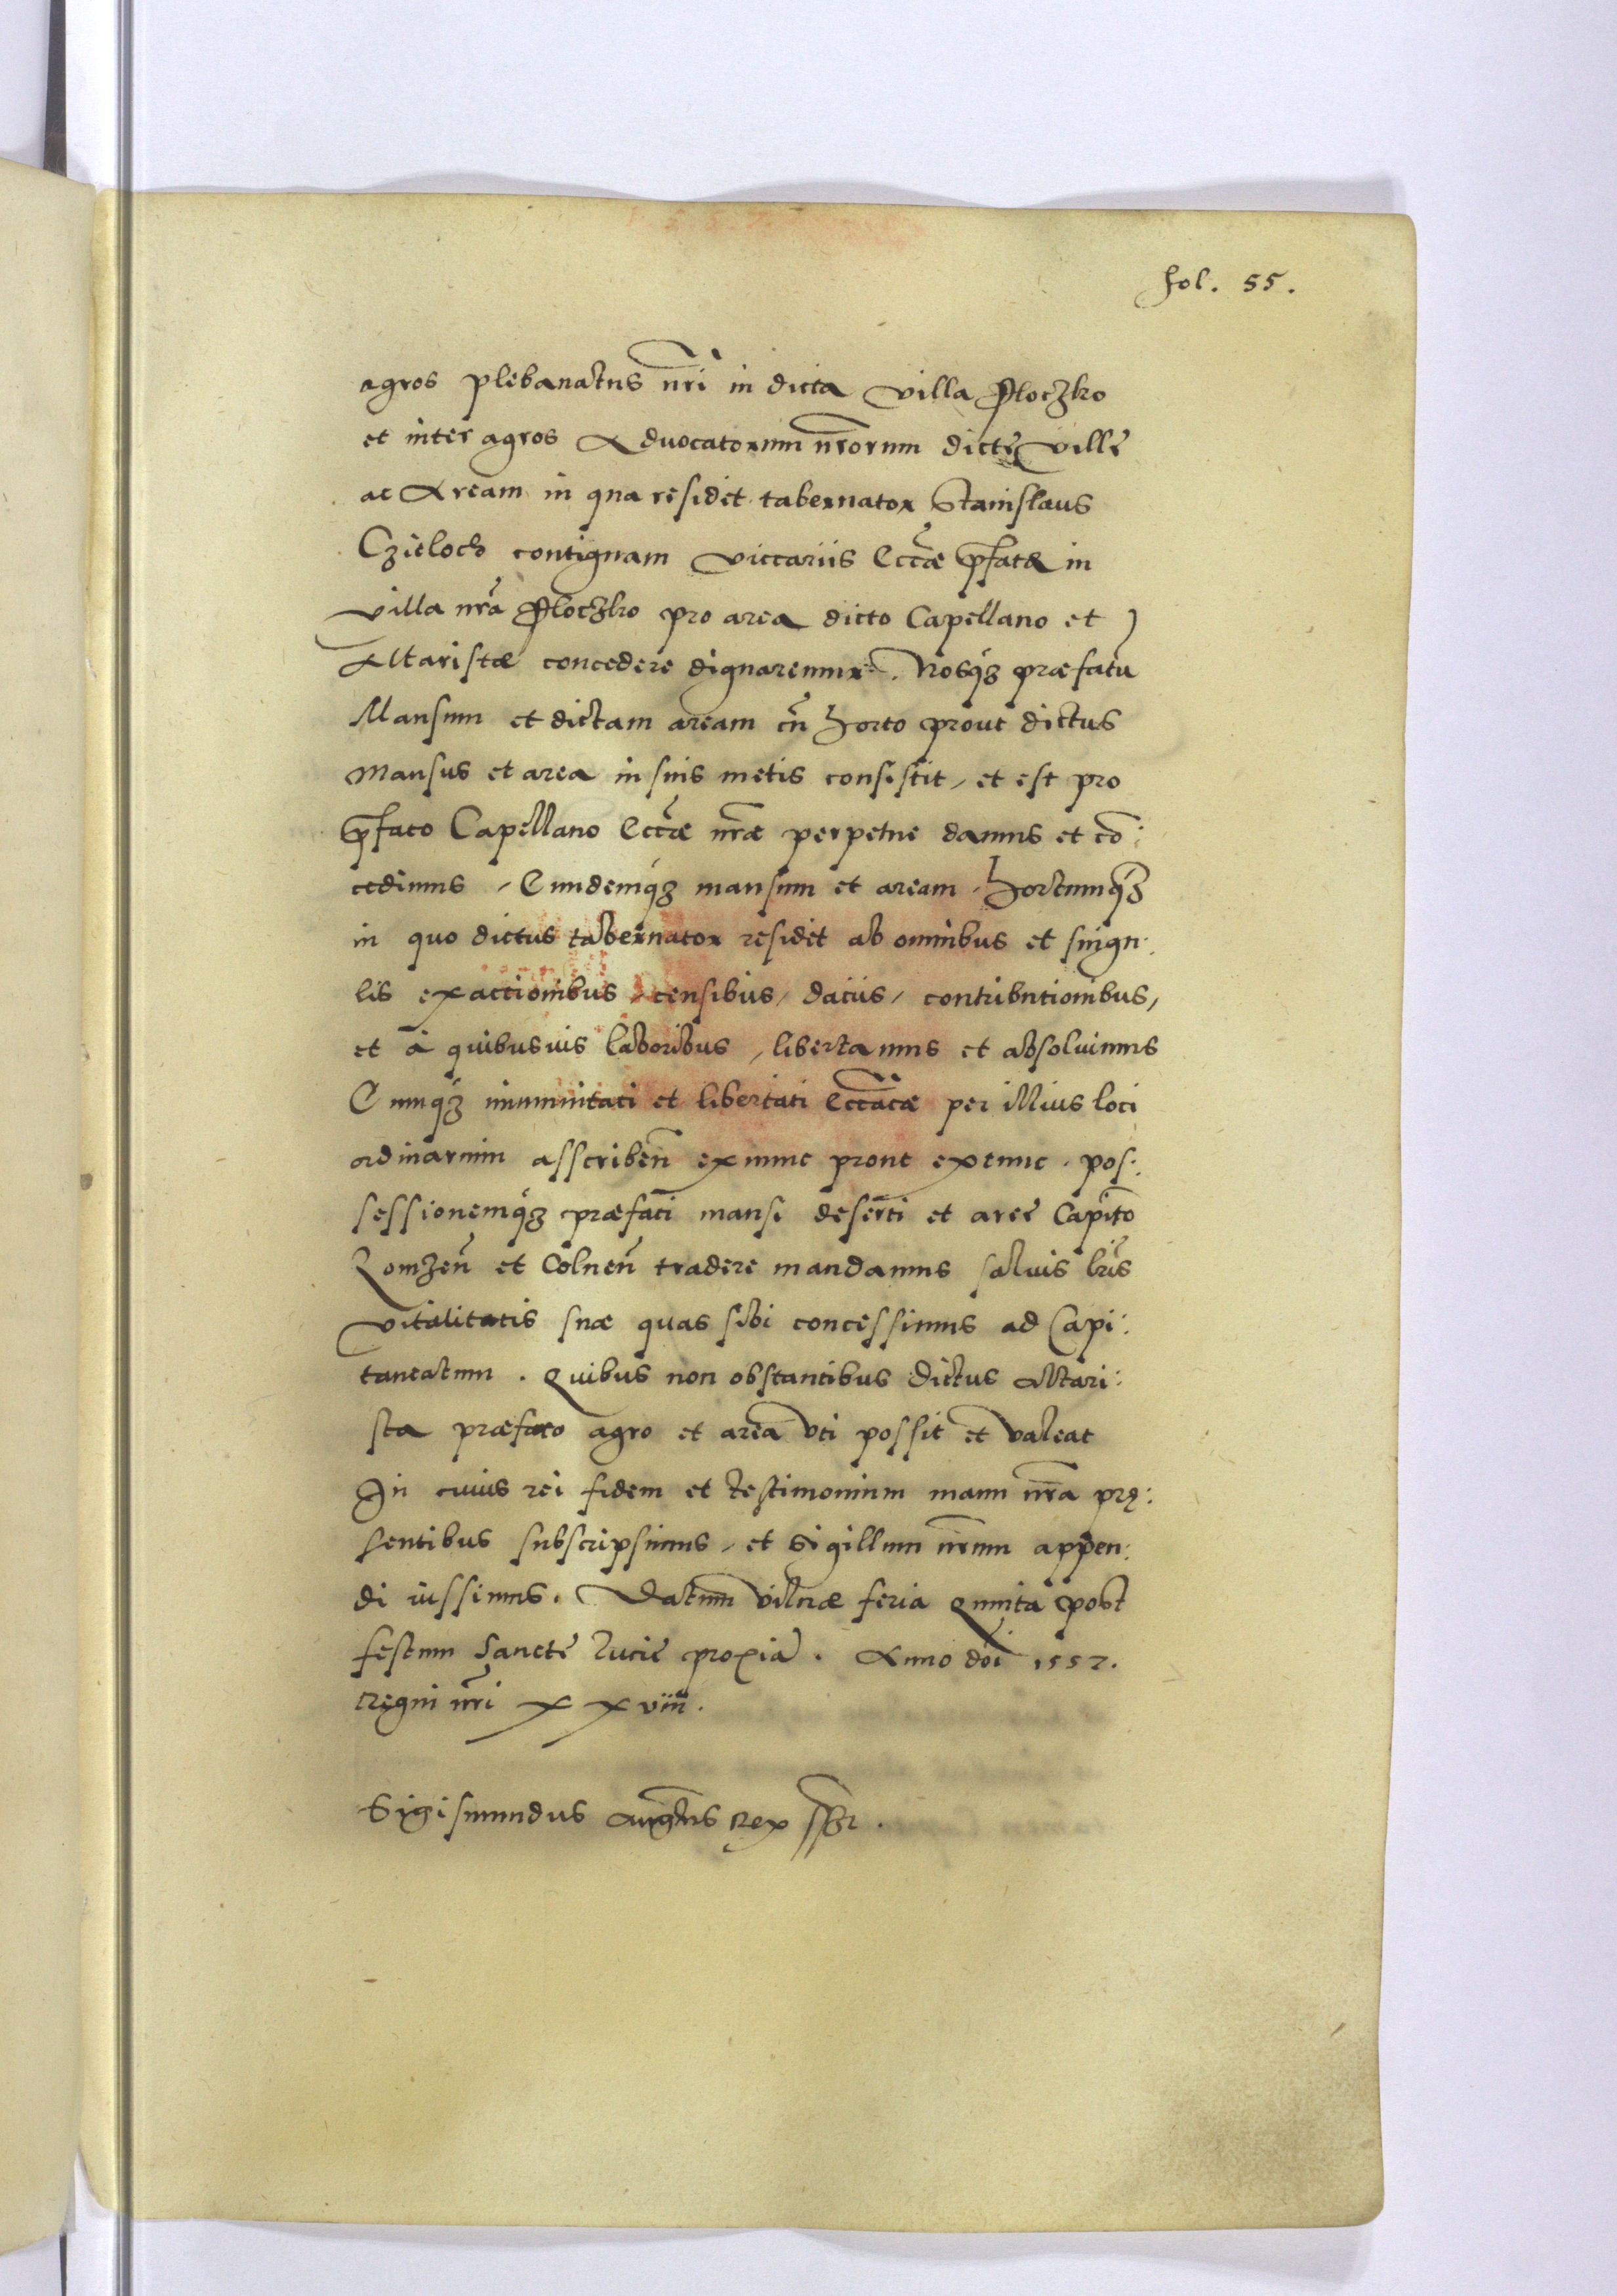 fol. 55.
agros plebanatus nri in dicta villa Ploczko
et inter agros Advocatorum nrorum dictę villę
ac Aream in qua residet tabernator Stanislaus
Czieloch contiguam viccariis Eccæ pfatæ in
villa nra Ploczko pro area dicto Capellano et
Altaristæ concedere dignaremur. Nosq́3 præfatū
Mansum et dictam aream cū horto prout dictus
Mansus et area in suis metis consistit, et est pro
pfato Capellano Eccæ nræ perpetue damus et cō:
cedimus, Eundemq́3 mansum et aream, hortumq́3
in quo dictus tabernator residet ab omnibus et singu:
lis exactionibus, censibus, daciis, contributionibus,
et à quibusuis laboribus, libertamus et absoluimus
Eumq́3 immunitati et libertati Eccacæ per illius loci
ordinarium asscriben̄ ex nunc prout ex tunc, pos:
sessionemq́3 præfati mansi deserti et areę Capito
Lomzen̄ et Colnen̄ tradere mandamus saluis lris
vitalitatis suæ quas sibi concessimus ad Capi:
taneatum. Quibus non obstantibus dictus Altari:
sta præfato agro et area vti possit et valeat
In cuius rei fidem et testimonium manu nra prę:
sentibus subscripsimus, et sigillum nrum appen:
di iussimus. Datum vilnæ feria quinta post
festum Sanctę Lucię proxia. Anno doi 1557.
regni nri x x viii.
Sigismundus Augustus Rex sszt.